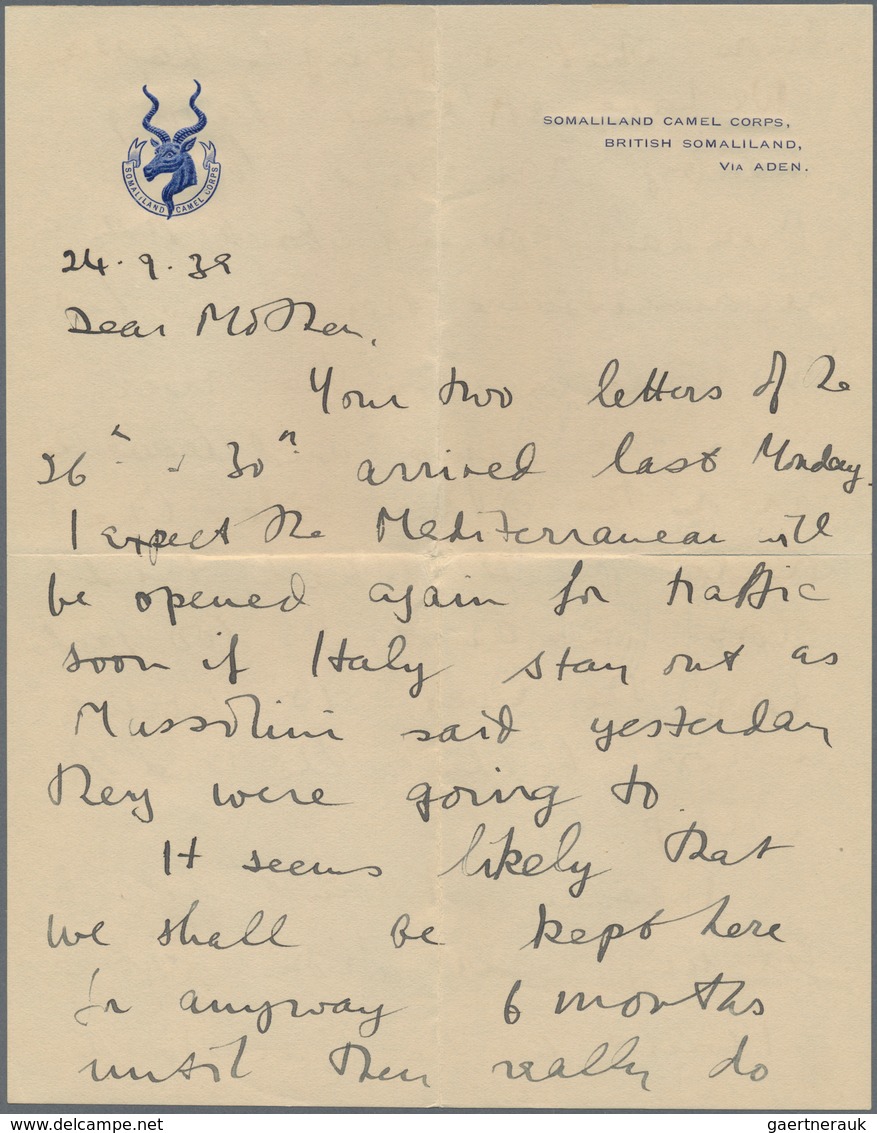 SOMALILAND CAMEL CORPS,
BRITISH SOMALILAND,
VIA ADEN.
SOMALILAND CAMEL CORPS
24.9.39
Dear Mother,
Your two letters of the
26th & 30th arrived last Monday.
I expect the Mediterranean will
be opened again for traffic
soon if Italy stay out as
Mussolini said yesterday
they were going to.
It seems likely that
we shall be kept here
for anyway 6 months
until they really do
gaertnerauk